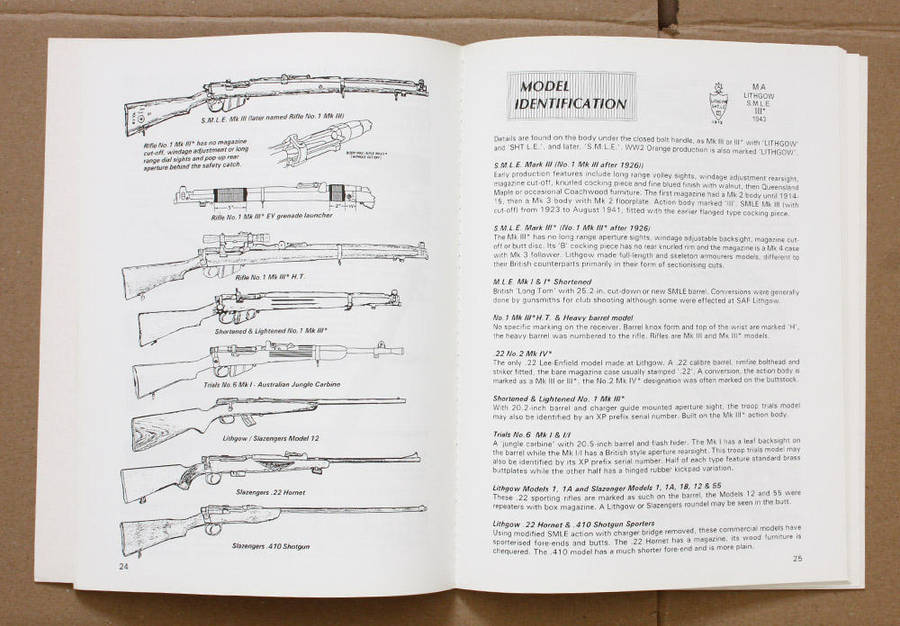 S.M.L.E. Mk III (later named Rifle No.1 Mk III)
Rifle No.1 Mk III* has no magazine
cut-off, windage adjustment or long
range dial sights and pop-up rear
aperture behind the safety catch.
Rifle No.1 Mk III* EY grenade launcher
Rifle No.1 Mk III* H.T.
Shortened & Lightened No.1 Mk III*
Trials No.6 Mk I - Australian Jungle Carbine
Lithgow / Slazengers Model 12
Slazengers .22 Hornet
Slazengers .410 Shotgun
24
MODEL
IDENTIFICATION
MA
LITHGOW
S.M.L.E.
III*
1943
Details are found on the body under the closed bolt handle, as Mk III or III* with 'LITHGOW'
and 'SHT L.E.', and later, 'S.M.L.E.'. WW2 Orange production is also marked 'LITHGOW'.
S.M.L.E. Mark III (No.1 Mk III after 1926))
Early production features include long range volley sights, windage adjustment rearsight,
magazine cut-off, knurled cocking piece and fine blued finish with walnut, then Queensland
Maple or occasional Coachwood furniture. The first magazine had a Mk 2 body until 1914-
15, then a Mk 3 body with Mk 2 floorplate. Action body marked 'III'. SMLE Mk III (with
cut-off) from 1923 to August 1941, fitted with the earlier flanged type cocking piece.
S.M.L.E. Mark III* (No.1 Mk III* after 1926)
The Mk III* has no long range aperture sights, windage adjustable backsight, magazine cut-
off or butt disc. Its 'B' cocking piece has no rear knurled rim and the magazine is a Mk 4 case
with Mk 3 follower. Lithgow made full-length and skeleton armourers models, different to
their British counterparts primarily in their form of sectionising cuts.
M.L.E. Mk I & I* Shortened
British 'Long Tom' with 25.2-in. cut-down or new SMLE barrel. Conversions were generally
done by gunsmiths for club shooting although some were effected at SAF Lithgow.
No.1 Mk III*H.T. & Heavy barrel model
No specific marking on the receiver. Barrel knox form and top of the wrist are marked 'H',
the heavy barrel was numbered to the rifle. Rifles are Mk III and Mk III* models.
.22 No.2 Mk IV*
The only .22 Lee-Enfield model made at Lithgow. A .22 calibre barrel, rimfire bolthead and
striker fitted, the bare magazine case usually stamped '.22'. A conversion, the action body is
marked as a Mk III or III*, the No.2 Mk IV* designation was often marked on the buttstock.
Shortened & Lightened No. 1 Mk III*
With 20.2-inch barrel and charger guide mounted aperture sight, the troop trials model
may also be identified by an XP prefix serial number. Built on the Mk III* action body.
Trials No.6 Mk I & I/I
A 'jungle carbine' with 20.5-inch barrel and flash hider. The Mk I has a leaf backsight on
the barrel while the Mk I/I has a British style aperture rearsight. This troop trials model may
also be identified by its XP prefix serial number. Half of each type feature standard brass
buttplates while the other half has a hinged rubber kickpad variation.
Lithgow Models 1, 1A and Slazenger Models 1, 1A, 1B, 12 & 55
These .22 sporting rifles are marked as such on the barrel, the Models 12 and 55 were
repeaters with box magazine. A Lithgow or Slazengers roundel may be seen in the butt.
Lithgow .22 Hornet & .410 Shotgun Sporters
Using modified SMLE action with charger bridge removed, these commercial models have
sporterised fore-ends and butts. The .22 Hornet has a magazine, its wood furniture is
chequered. The .410 model has a much shorter fore-end and is more plain.
25